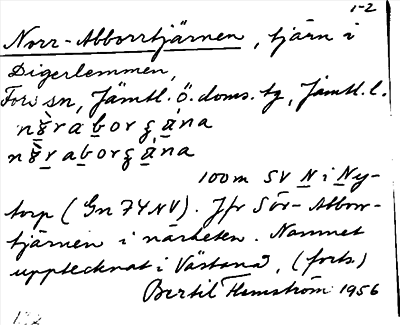 1-2
Norr-Abborrtjärnen, tjärn i
Digerlemmen,
Fors sn, Jämtl. ö. doms. tg, Jämtl. l.
100m SV N i Ny-
torp (Gn 74 NV). Jfr Sör-Abborr-
tjärnen i närheten. Namnet
upptecknat i Västanå, (forts)
Bertil Flemström 1956